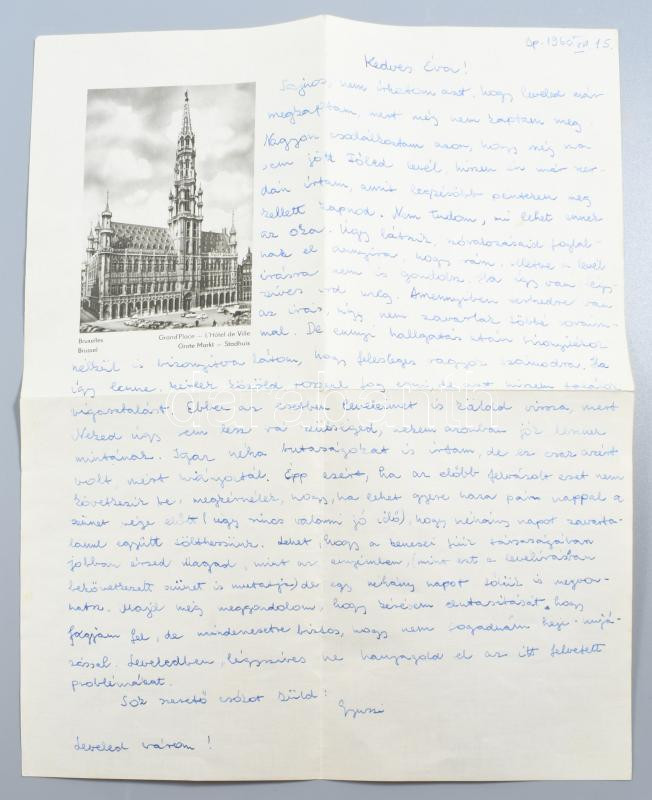 Bp. 1960. VII. 15.
Kedves Éva!
Sajnos, nem írhatom azt, hogy leveled már
megkaptam, mert még nem kaptam meg.
Nagyon csodálkoztam azon, hogy még ma
sem jött Tőled levél, hiszen én már szer-
dán írtam, amit legkésőbb pénteken meg
kellett kapnod. Nem tudom, mi lehet ennek
az oka. Úgy látszik, udvarlásaid foglal-
nak el annyira, hogy rám, illetve a levél
írásra nem is gondolsz. Ha így van légy
szíves írd meg. Amennyiben terhedre van
az írás, úgy nem zavarlak többé soraim-
mal. De ennyi hallgatás után bizonyíték
nélkül is bizonyítva látom, hogy felesleges vagyok számodra. Ha
így lenne, kérlek közöld rosszul fog esni, de azt hiszem találok
vigasztalást. Ebben az esetben leveleimet is küldd vissza, mert
Neked úgy sem lesz rá szükséged, nekem azonban jók lesznek
mintának. Igaz néha butaságokat is írtam, de ez csak azért
volt, mert hiányoztál. Épp ezért, ha az előbb felvázolt eset nem
következik be, megkérnélek, hogy, ha lehet gyere haza pár nappal a
szünet vége előtt (úgy sincs valami jó idő), hogy néhány napot zavarta-
lanul együtt tölthessünk. Lehet, hogy a fiúk társaságában
jobban érzed magad, mint az enyémben, (mint ezt a levélírásban
bekövetkezett szünet is mutatja) de egy néhány napot tőlük is megvon-
hatsz. Majd még meggondolom, hogy kérésem elutasítását, hogy
fogjam fel, de mindenesetre biztos, hogy nem fogadnám
Leveledben, légyszíves ne hanyagold el az itt felvetett
problémákat.
Sok szerető csókot küld:
Gyuszi
Leveled várom!
Bruxelles
Brussel
Grand'Place – L'Hôtel de Ville
Grote Markt – Stadhuis
darabanth